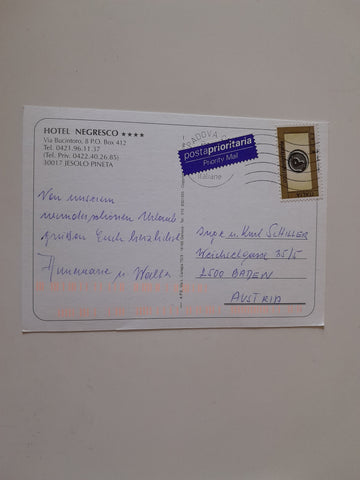 HOTEL NEGRESCO ★★★★
Via Bucintoro, 8 P.O. Box 412
Tel. 0421.96.11.37
(Tel. Priv. 0422.40.26.85)
30017 JESOLO PINETA
PADOVA
postaprioritaria
Priority Mail
Italiane
Von unserem
wunderschönen Urlaub
grüßen Euch herzlichst
Annemarie u. Walter
u. Karl SCHILLER
Weichselgasse 35/5
2500 BADEN
AUSTRIA